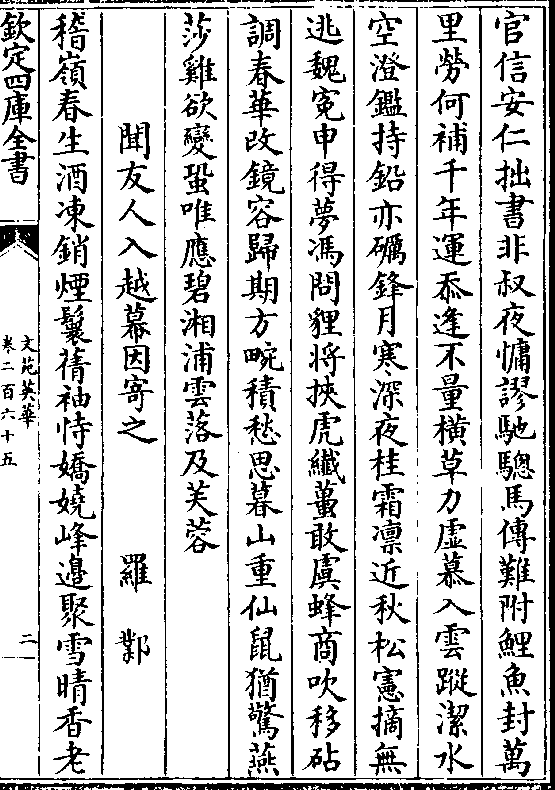 官信安仁拙書非叔夜慵謬馳驄馬傳難附鯉魚封萬
里勞何補千年運忝逢不量橫草力虛慕入雲蹤潔水
空澄鑑持鉛亦礪鋒月寒深夜桂霜凛近秋松憲摘無
逃魏寃申得夢馮問貍將挾虎纖蠆敢虞蜂商吹移砧
調春華改鏡容歸期方畹積愁思暮山重仙鼠猶驚燕
莎雞欲變蛩唯應碧湘浦雲落及芙蓉
聞友人入越幕因寄之 羅鄴
稽嶺春生酒凍銷煙鬟蒨袖恃嬌嬈峰邉聚雪晴香老
欽定四庫全書
文苑英華
卷二百六十五
二